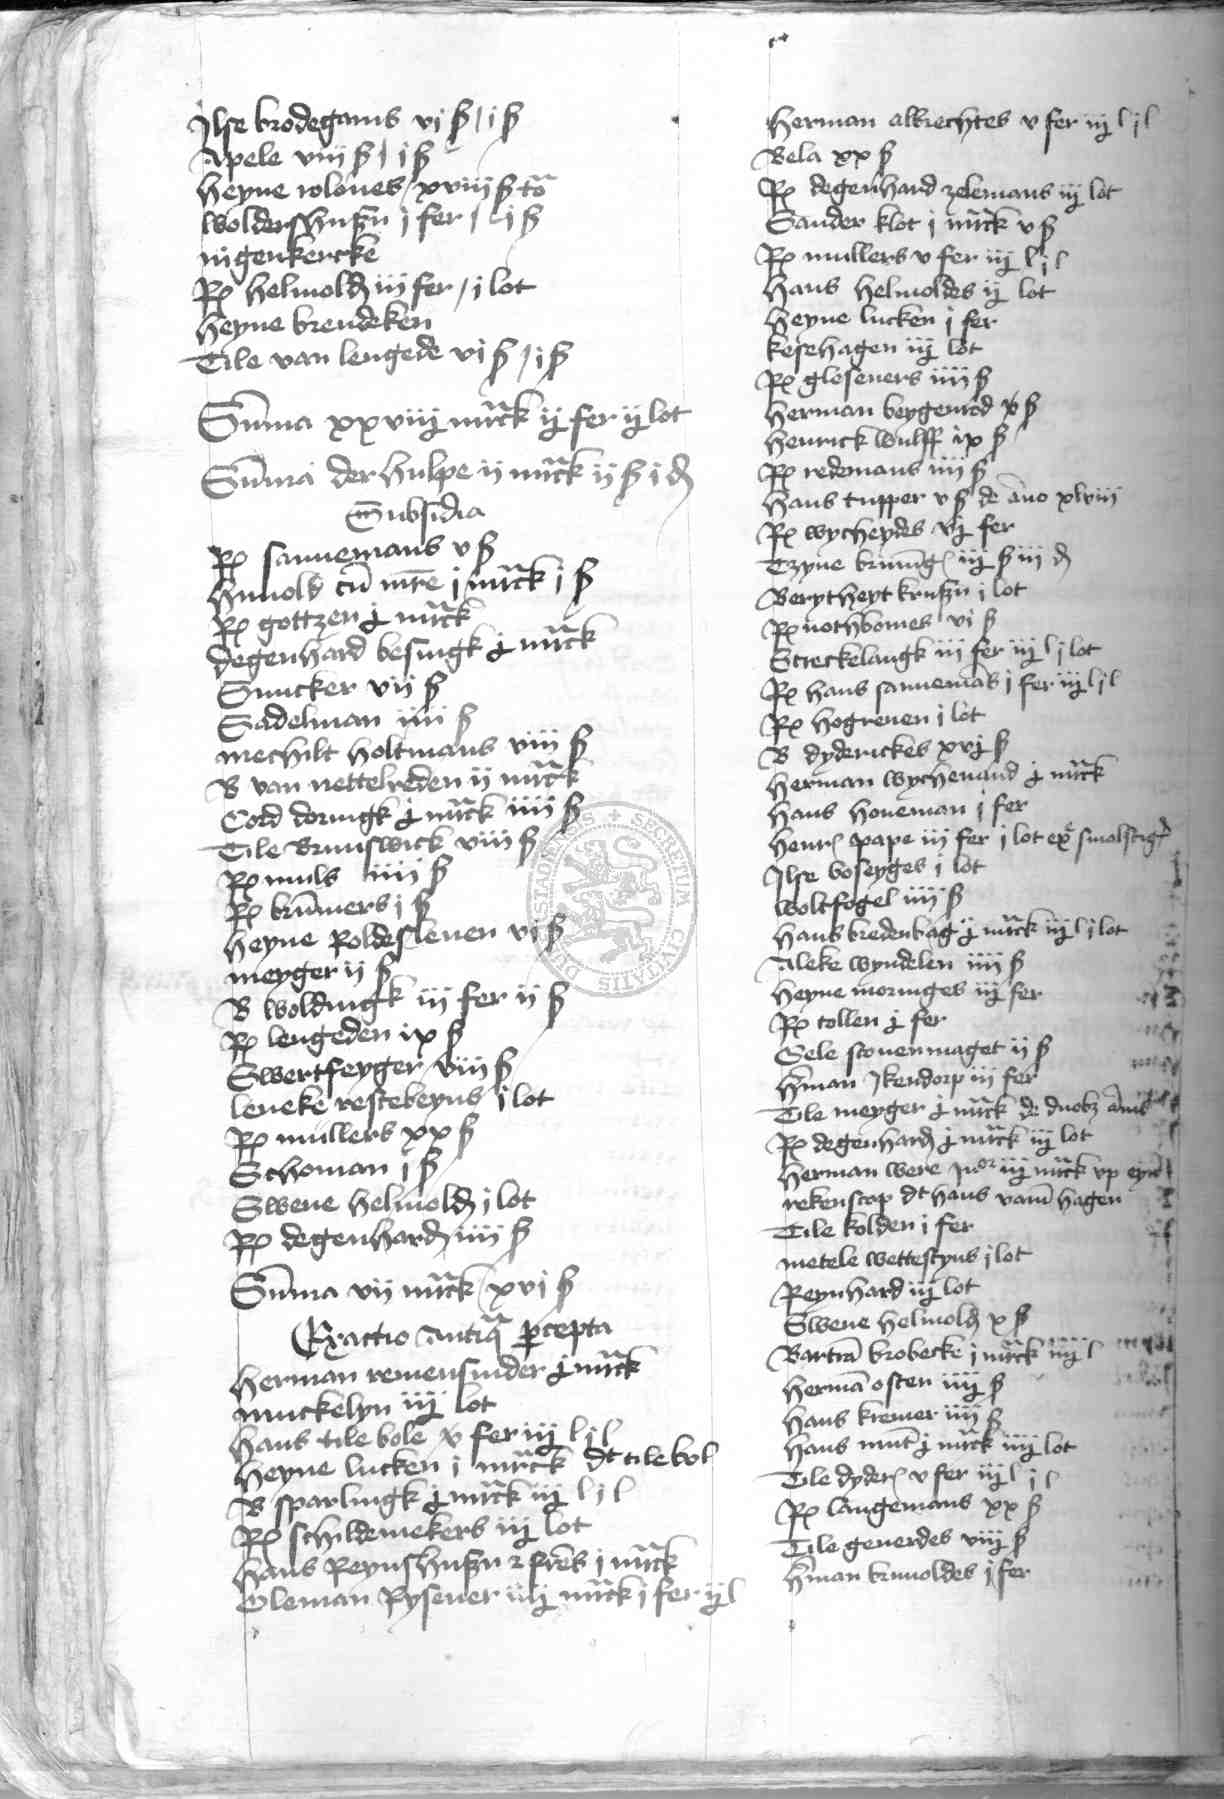 Ilse brodegams vi ß / i ß
Apele viii ß / i ß
Heyne roloues / xviii ß
Woldershuszn j fer / i ß
nigenkercke
Rel helmold iii fer / i lot
Heyne brendeken
Tile van lengede vi ß / i ß
Summa xxviij mrck ij fer ij lot
Summa der hulpe ii mrck ii ß i d
Subsidia
Rel sannemans v ß
Hunold cu mre j mrck i ß
Rel gottzen j mrck
Degenhard besingk j mrck
Smucker vii ß
Sadelman iiii ß
mechilt holtmans viii ß
B van nettelreden ii mrck
Cord doringk j mrck iiii ß
Tile Brunswick viii ß
Rel muls iiii ß
Rel brumers j ß
Heyne Roldesleuen vi ß
meyger ii ß
B woldingk iii fer ii ß
Rel lengeden ix ß
Swertfeyger viii ß
leneke restebeyns i lot
Rel mullers xx ß
Schoman j ß
Swene helmold i lot
Rel degenhard iiii ß
Summa vii mrck / xvi ß
Exactio Antiq pcepta
Herman remensnider j mrck
munckelyn iiij lot
Hans tile bole v fer iij l j l
Heyne lucken i mrck dt tile bol
B sparlingk j mrck iij l j l
Rel schildemekers iij lot
Hans Reynshuszn z fres i mrck
Oleman Rysener iiij mrck i fer ij l
Herman albrechtes v fer iij l j l
Bela xx ß
Rel degenhard zelemans iij lot
Sander klot j mrck v ß
Rel mullers v fer iij l j l
Hans helmoldes ij lot
Heyne lucken j fer
kesehagen iij lot
Rel gloseners iiii ß
Herman beygerod x ß
Henrick wulff ix ß
Rel redemans iiii ß
Hans tupper v ß de ano xlviii
Rel wycheydes vj fer
Tzyne bruning iij ß iii d
Beryt heyt kruszn i lot
Rel nothbomes vi ß
Streckelangk iii fer iij l j lot
Rel hans sannemas j fer iij l j l
Rel hogreuen i lot
B dyderickes xvj ß
Herman wychenand j mrck
Hans honeman j fer
Henr pape iii fer j lot
Ilse boseyges i lot
woltfogel iiii ß
Hans bredenbag j mrck iij l j lot
Aleke wyndelen iiii ß
Heyne moringes iij fer
Rel tollen j fer
Gele stouenmaget ii ß
Hman Ikendorp iii fer
Tile meyger j mrck de duobz anis
Rel degenhard j mrck iij lot
Herman were iij mrck vp eyne
rekenscop dt hans vam hagen
Tile kolden j fer
metele wettestyns j lot
Reynhard iij lot
Swene helmold x ß
Bartra brobecke j mrck iiij l
Herma osten iiij ß
Hans kremer iiii ß
Hans munt j mrck iiij lot
Tile dyder v fer iij l j l
Rel langemans xx ß
Tile geuerdes viij ß
Hman brunoldes j fer
DUDERSTADENSIS + SECRETUM CIVITATIS